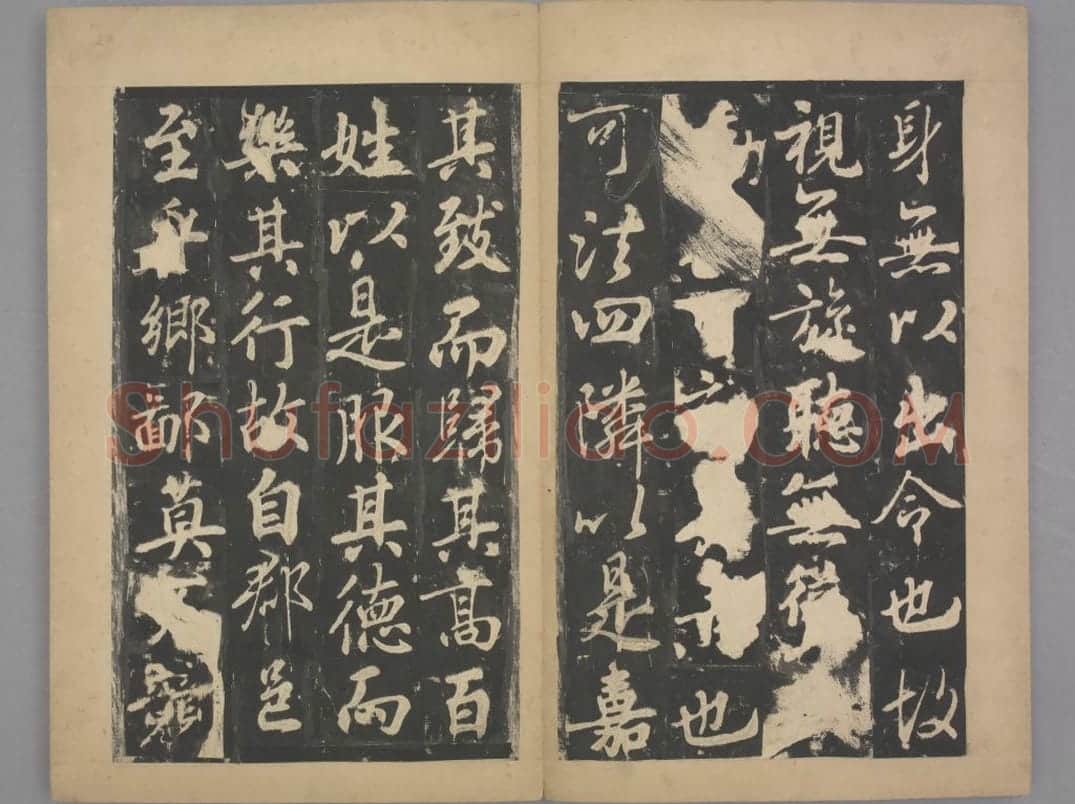 身無以出令也故
視無旋聽無從
也
可法四隣以是嘉
其致而歸其高百
姓以是服其德而
樂其行故自郡邑
至乎鄉鄙莫
Shufaziliao.COM